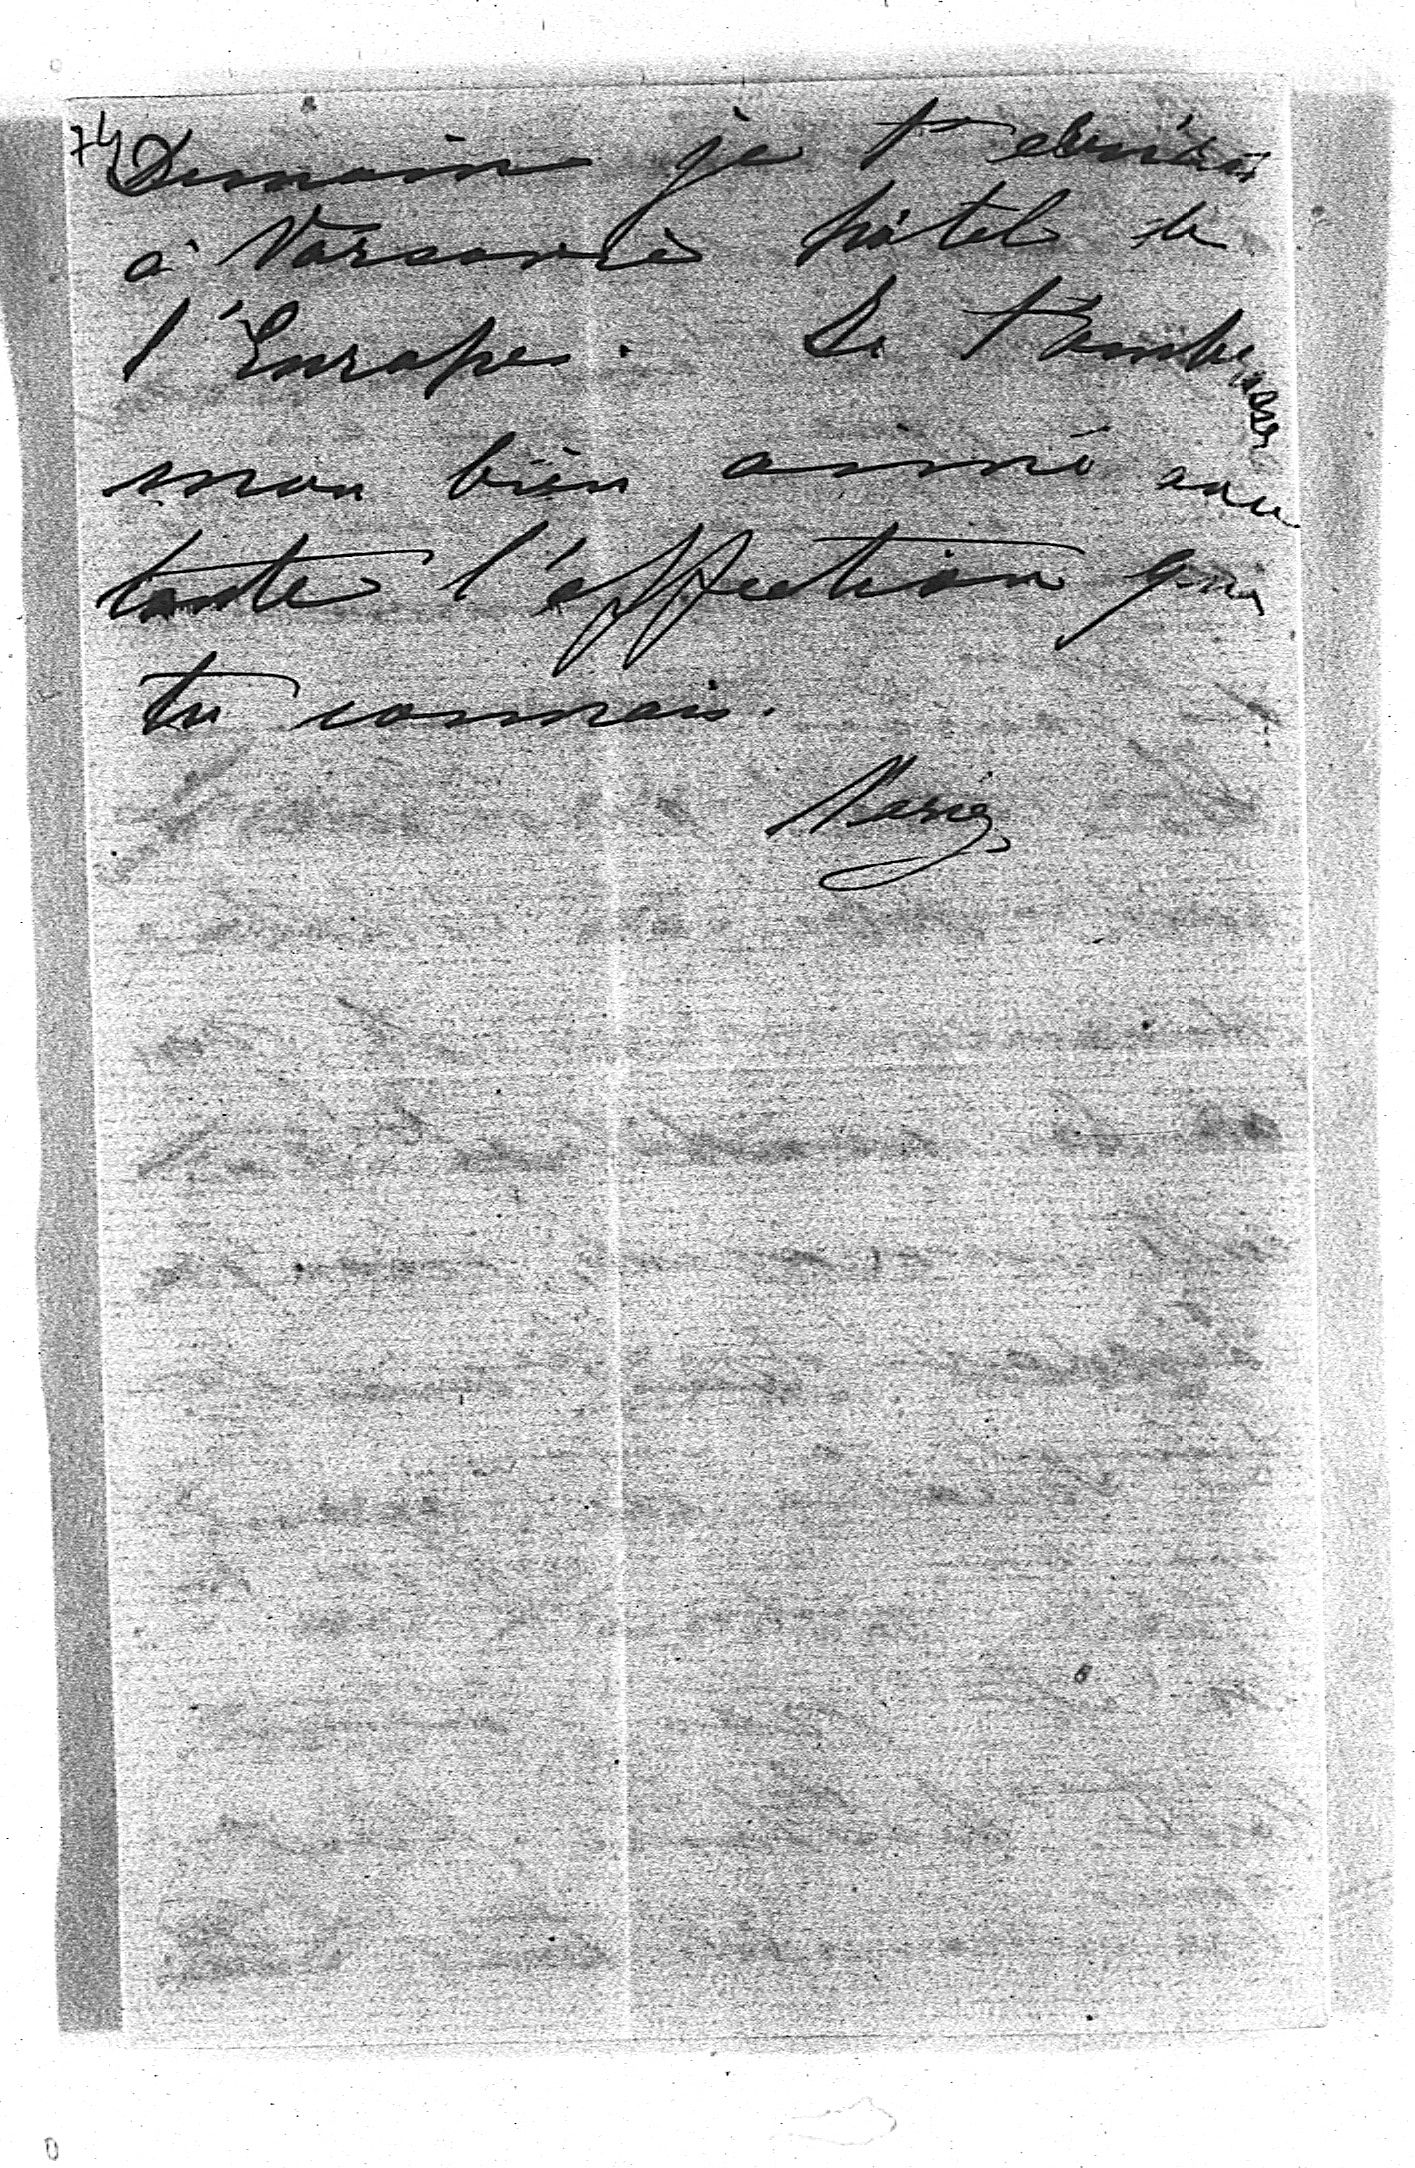 74
Demain je t'écrirai
à Varsovie hôtel de
l'Europe. Je t'embrasse
mon bien aimé avec
toute l'affection que
tu connais.